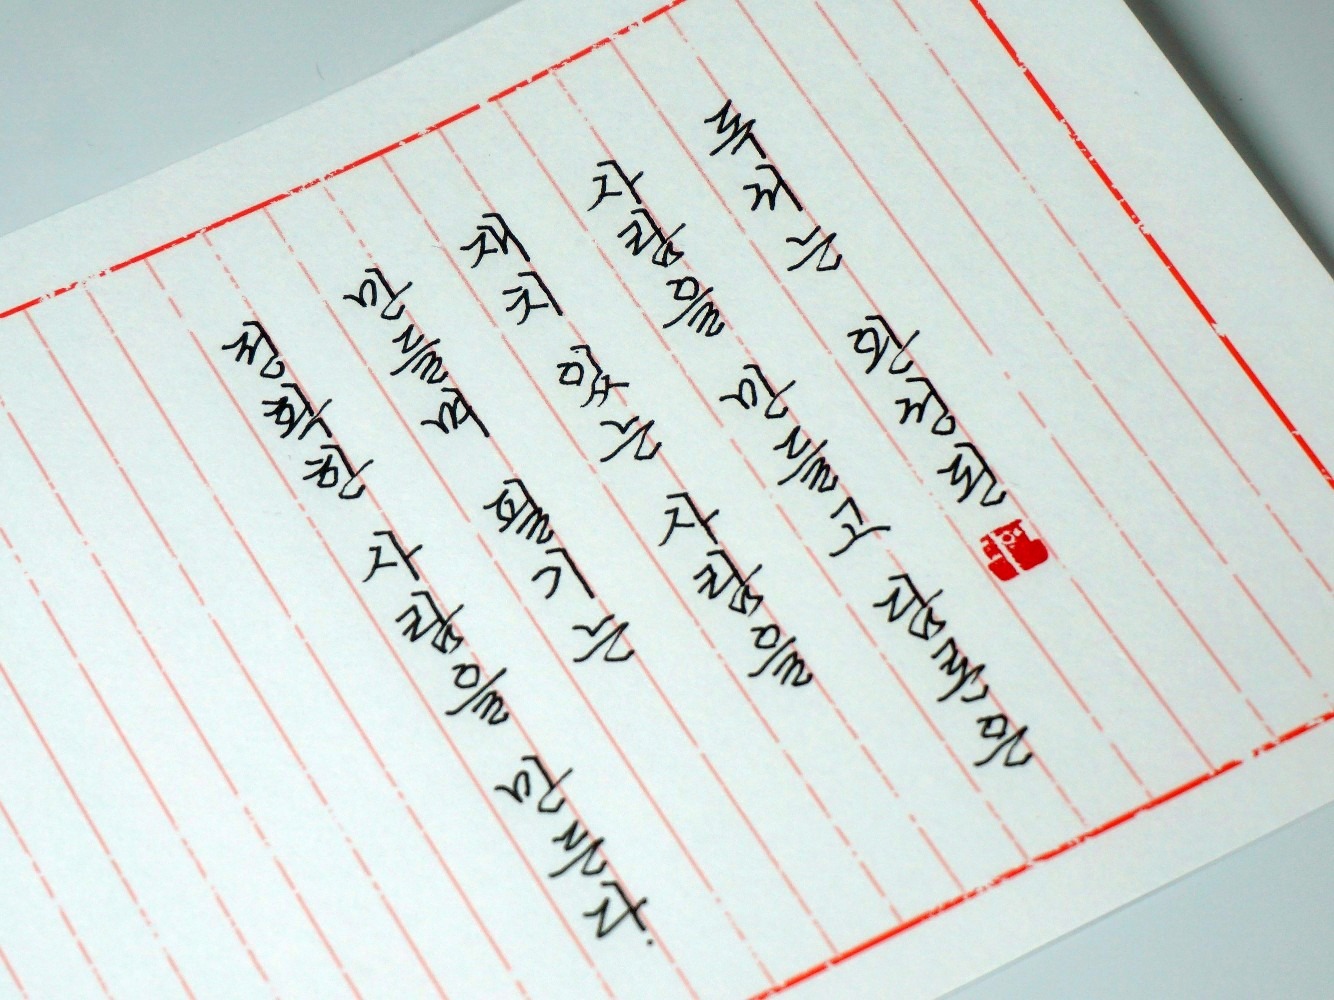 독서는 완전한
사람을 만들고 담론은
재치 있는 사람을
만들며 필기는
정확한 사람을 만든다.